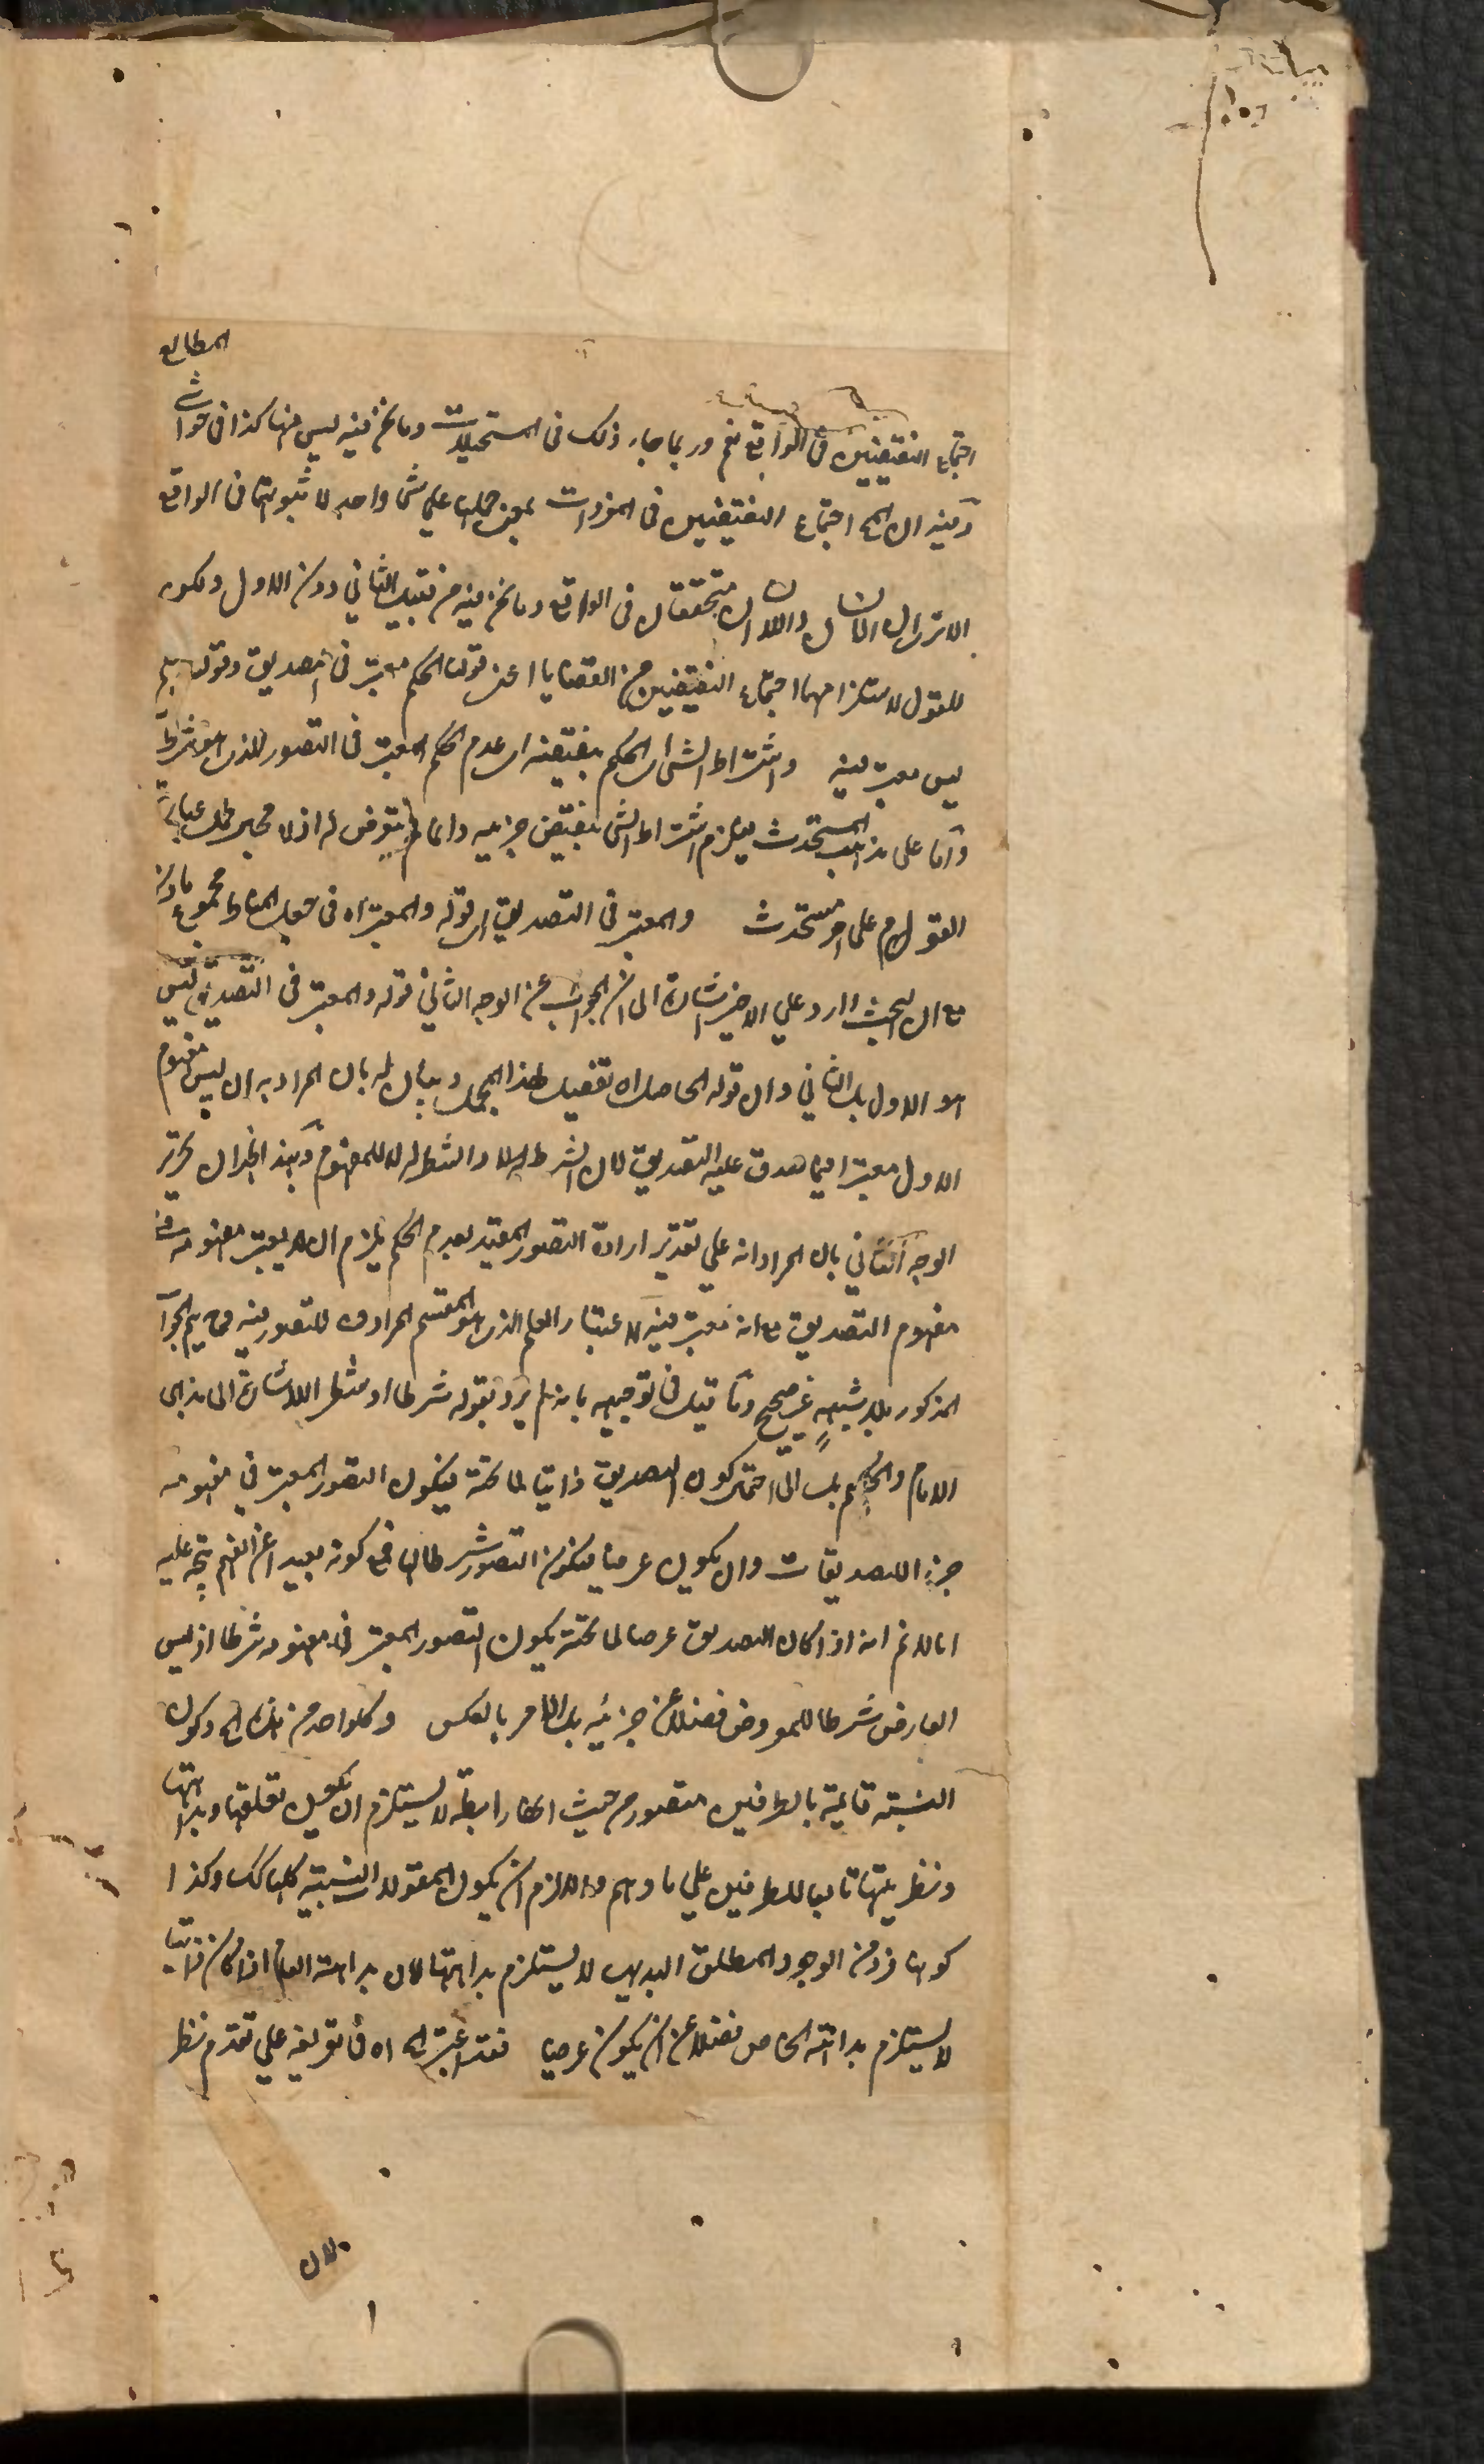 المطالع
اجتماع النقيضين في الواقع نعم وربما جاء ذلك في المستحيلات وما نحن فيه ليس منها كذا في حواشي
وفيه ان المح اجتماع النقيضين في المفردات بمعنى حملها على شئ واحد لا ثبوتها في الواقع
الا ترى ان الانسان واللا انسان متحققان في الواقع وما نحن فيه من قبيل الثاني دون الاول ولكون
القول لاستلزامهما اجتماع النقيضين من القضايا اعنى قولنا الحكم معتبر في التصديق وقولنا الحكم
ليس معتبر فيه واشتراط الشئ اى الحكم بنقيضه اى عدم الحكم المعتبر في التصور الذى هو شرط
واما على مذهب المستحدث فيلزم اشتراط الشئ بنقيض جزئيه وانما لم يتعرض له اذ لا مجبر لحمل عبارة
القوم على امر مستحدث والمعتبر في التصديق اى قوله والمعتبر اه في جعل المناط مجموع
مع ان البحث وارد على الاخير اشارة الى ان الجواب عن الوجه الثاني قوله والمعتبر في التصديق ليس
هو الاول بل الثاني وان قوله الحاصل اه تفصيل لهذا المجمل وبيان له بان المراد به ان ليس مفهوم
الاول معتبرا فيما صدق عليه التصديق لان الشرط له لا والشطر له لا للمفهوم وبهذا ان تحرير
الوجه الثاني بان المراد انه على تقدير ارادة التصور المقيد بعدم الحكم يلزم ان لا يعتبر مفهومه في
مفهوم التصديق مع انه معتبر فيه لاعتبار العلم الذى هو المقسم المرادف للتصور فيه فح يتم الجواب
المذكور بلا شبهة غير صحيح وما قيل في توجيهه بانه لم يرد بقوله شرطا او شطرا الاشارة الى مذهبى
الامام والحكيم بل الى احتمال كون التصديق ذاتيا لما تحته فيكون التصور المعتبر في مفهومه
جزء التصديقات وان يكون عرضيا فيكون التصور شرطا لها فمع كونه بعيدا عن الفهم يتجه عليه
انا لا نم انه اذا كان التصديق عرضيا لما تحته يكون التصور المعتبر في مفهومه شرطا اذ ليس
العارض شرطا للمعروض فضلا عن جزئيه بل الامر بالعكس وكلواحد من وكون
النسبة قائمة بالطرفين متصور من حيث انها رابطة لا يستلزم ان يكون تعلقها وبداهتها
ونظريتها تابعا للطرفين على ما وهم واللازم ان يكون المقولات النسبية كلها كك وكذا
كونها فرد من الوجود المطلق البديهى لا يستلزم بداهتها لان بداهة العام اذا كان ذاتيا
لا يستلزم بداهة الخاص فضلا عن ان يكون عرضيا فقد اعتبر اه في تعريفه على تقدم نظر
لان